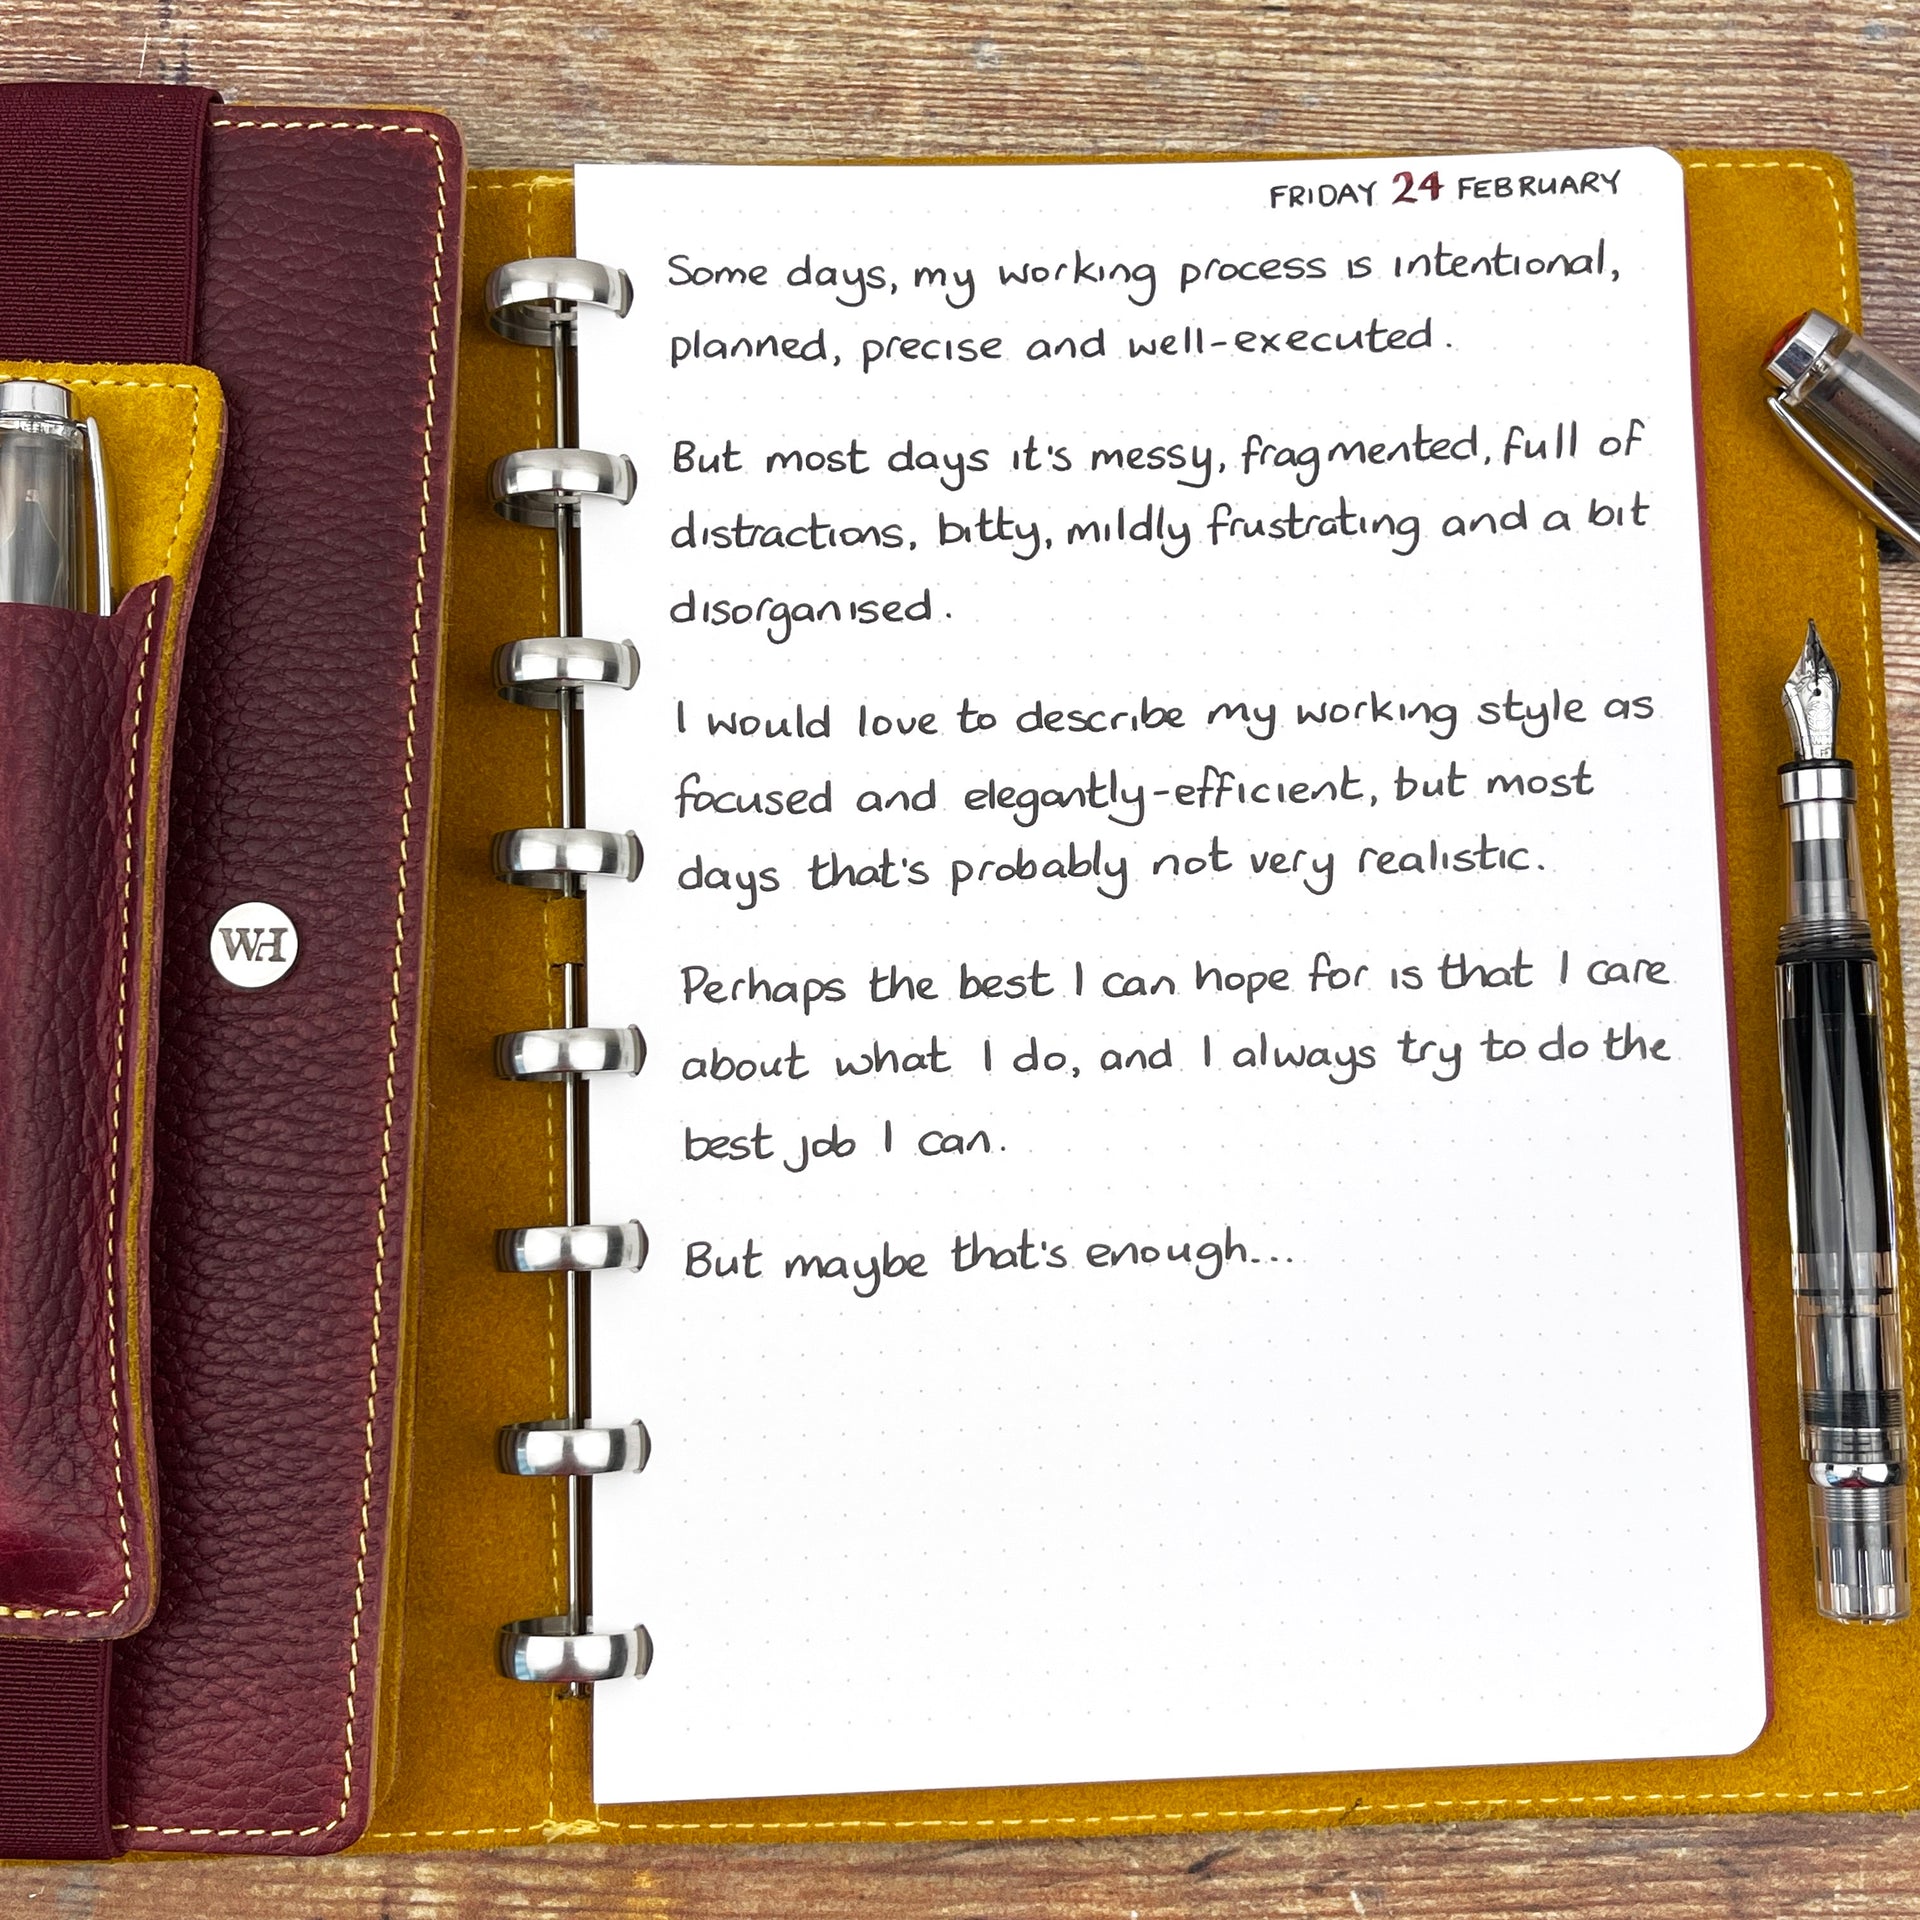 WH
FRIDAY 24 FEBRUARY
Some days, my working process is intentional,
planned, precise and well-executed.
But most days it's messy, fragmented, full of
distractions, bitty, mildly frustrating and a bit
disorganised.
I would love to describe my working style as
focused and elegantly-efficient, but most
days that's probably not very realistic.
Perhaps the best I can hope for is that I care
about what I do, and I always try to do the
best job I can.
But maybe that's enough...